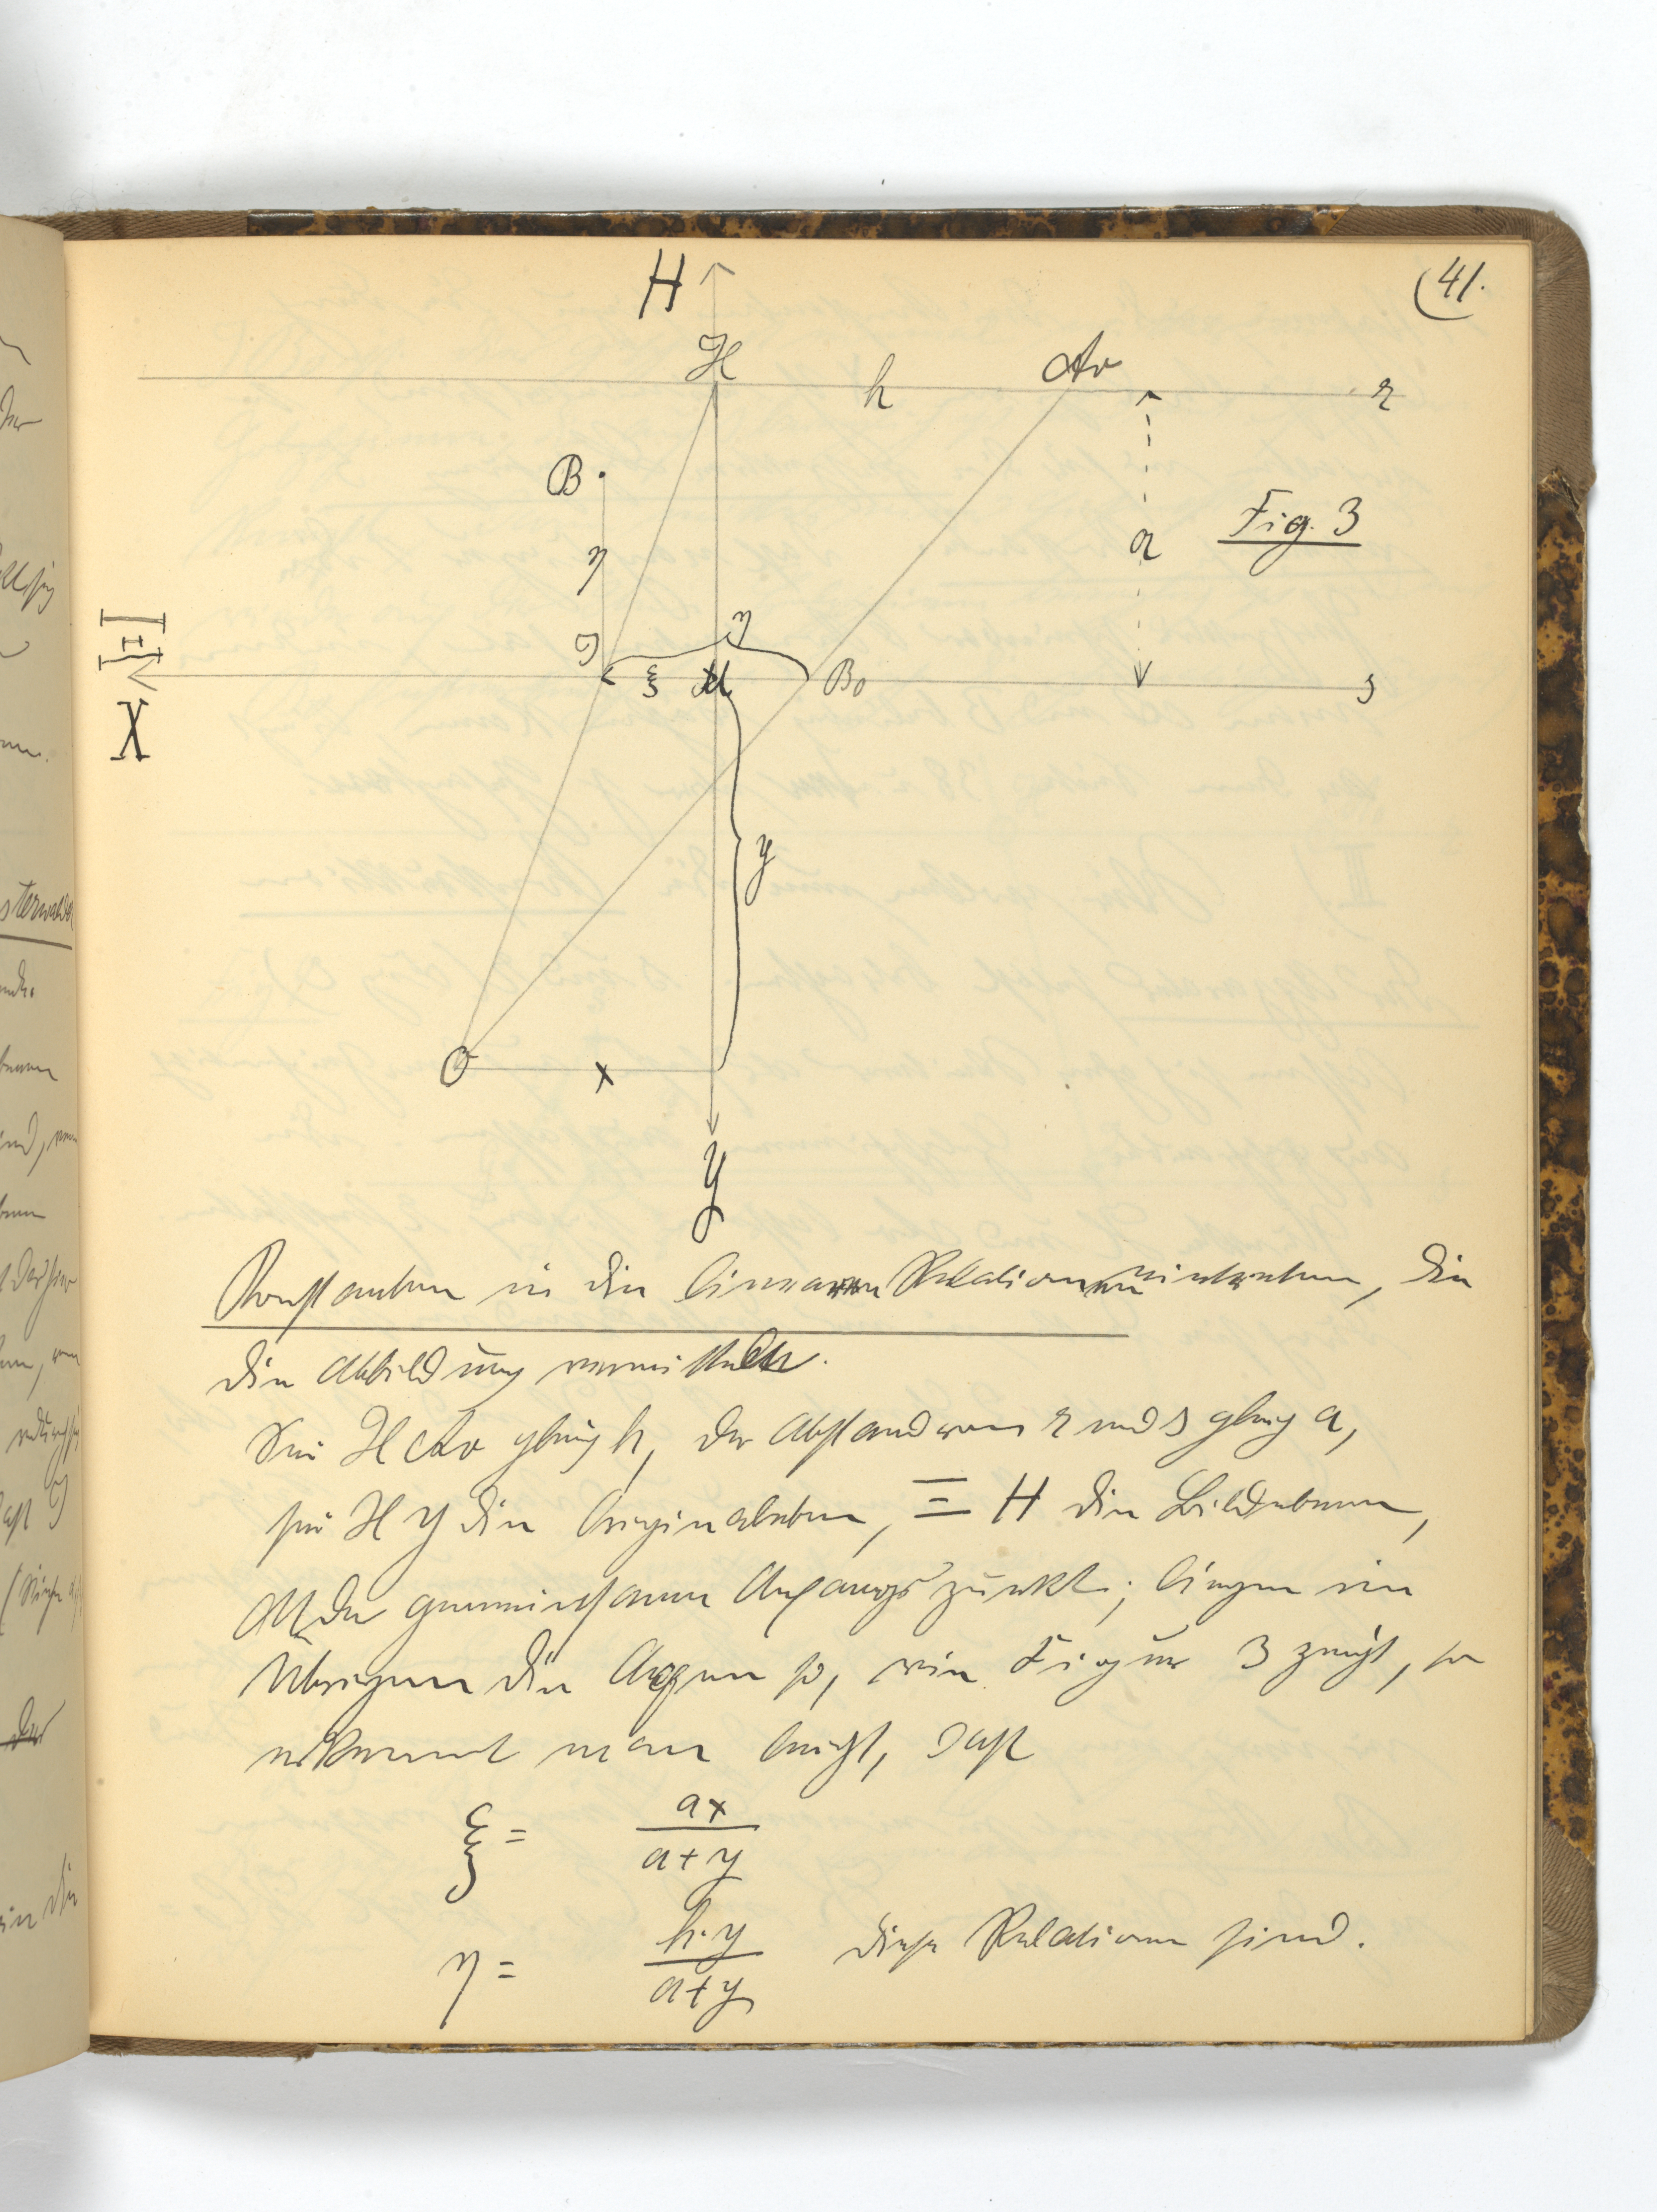 (41.
H
H h Av r
B
η a Fig. 3
J ξ M η B₀ s
Ξ
X
y
O x
Y
Konstanten in die linearen Relationen eintreten, die
die Abbildung vermitteln.
Sei H Av gleich h, der Abstand von r und s gleich a,
sei X Y die Originalebene, Ξ H die Bildebene,
M der gemeinsame Anfangspunkt; liegen im
Übrigen die Axen so, wie Figur 3 zeigt, so
erkennt man leicht, daß
ξ = ax / a+y
η = h·y / a+y diese Relationen sind.